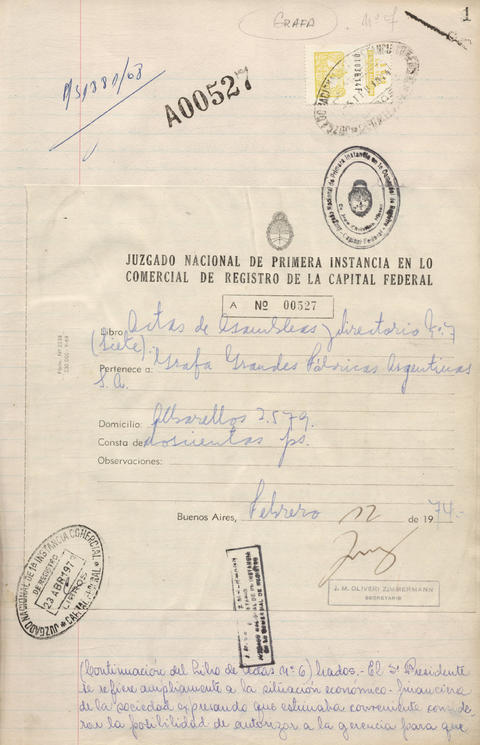 GRAFA
Nº 7
1
A00527
JUZGADO NACIONAL DE PRIMERA INSTANCIA EN LO
COMERCIAL DE REGISTRO DE LA CAPITAL FEDERAL
A Nº 00527
Libro Actas de Asambleas y directorio Nº 7
(siete).
Pertenece a: "Grafa Grandes Fábricas Argentinas
S.A.
Domicilio: Albarellos 2.579.
Consta de doscientas ps.
Observaciones:
Buenos Aires, Febrero 12 de 1974.-
J. M. OLIVERI ZIMMERMANN
SECRETARIO
JUZGADO NACIONAL DE 1ª INSTANCIA COMERCIAL
DE REGISTRO
CAPITAL FEDERAL
(Continuación del Libro de Actas Nº 6) lizados.- El Sr Presidente
se refiere ampliamente a la situación económico-financiera
de la sociedad expresando que estimaba conveniente conside-
rar la posibilidad de autorizar a la gerencia para que